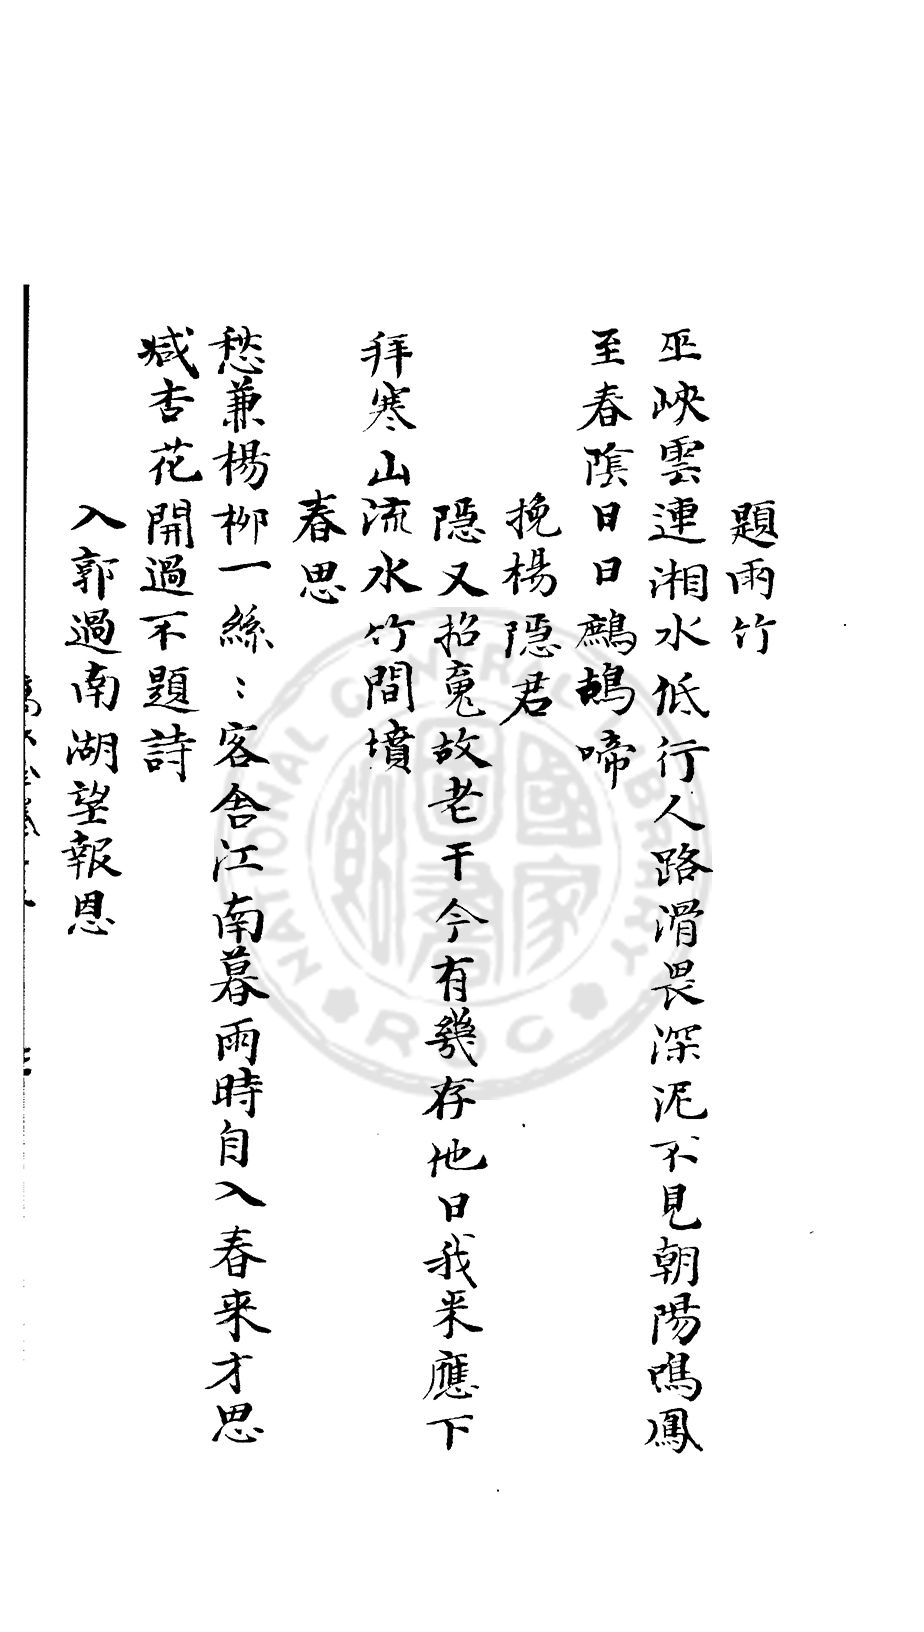 題雨竹
巫峽雲連湘水低行人路滑畏深泥不見朝陽鳴鳳
至春陰日日鷓鴣啼
挽楊隱君
隱又招䰟故老干今有幾存他日我来應下
拜寒山流水竹間墳
春思
愁兼楊柳一絲〻客舍江南暮雨時自入春来才思
减杏花開過不題詩
入郭過南湖望報恩
NATIONAL CENTRAL LIBRARY
R.O.C
國家圖書